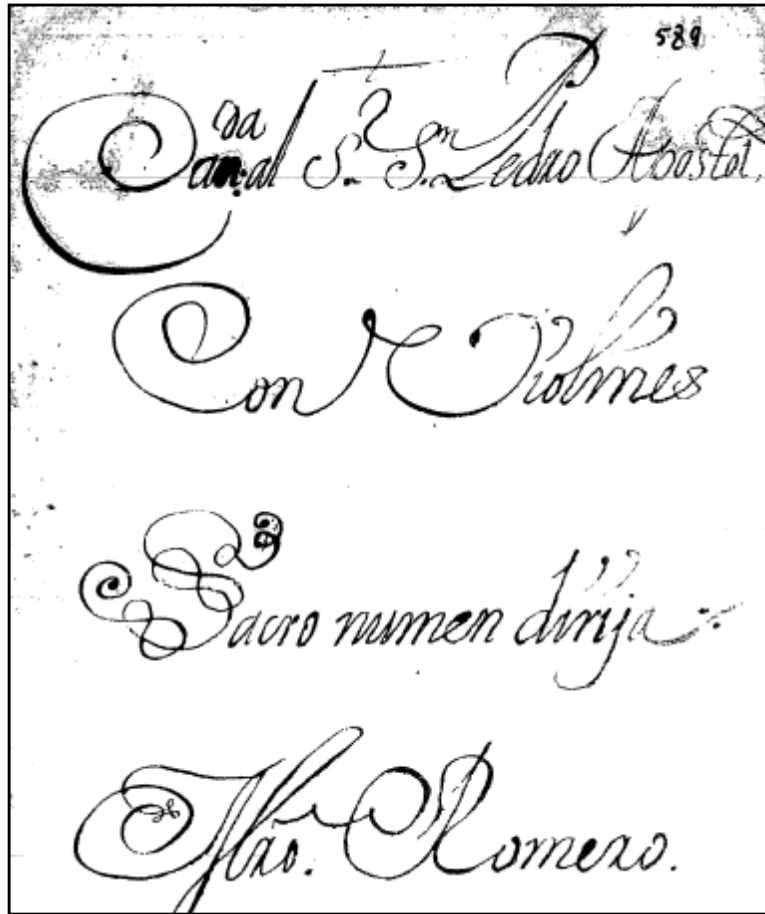 589
Can.da al S.r S.n Pedro Apostol,
Con Violines
Sacro numen dirija
Mro. Romero.